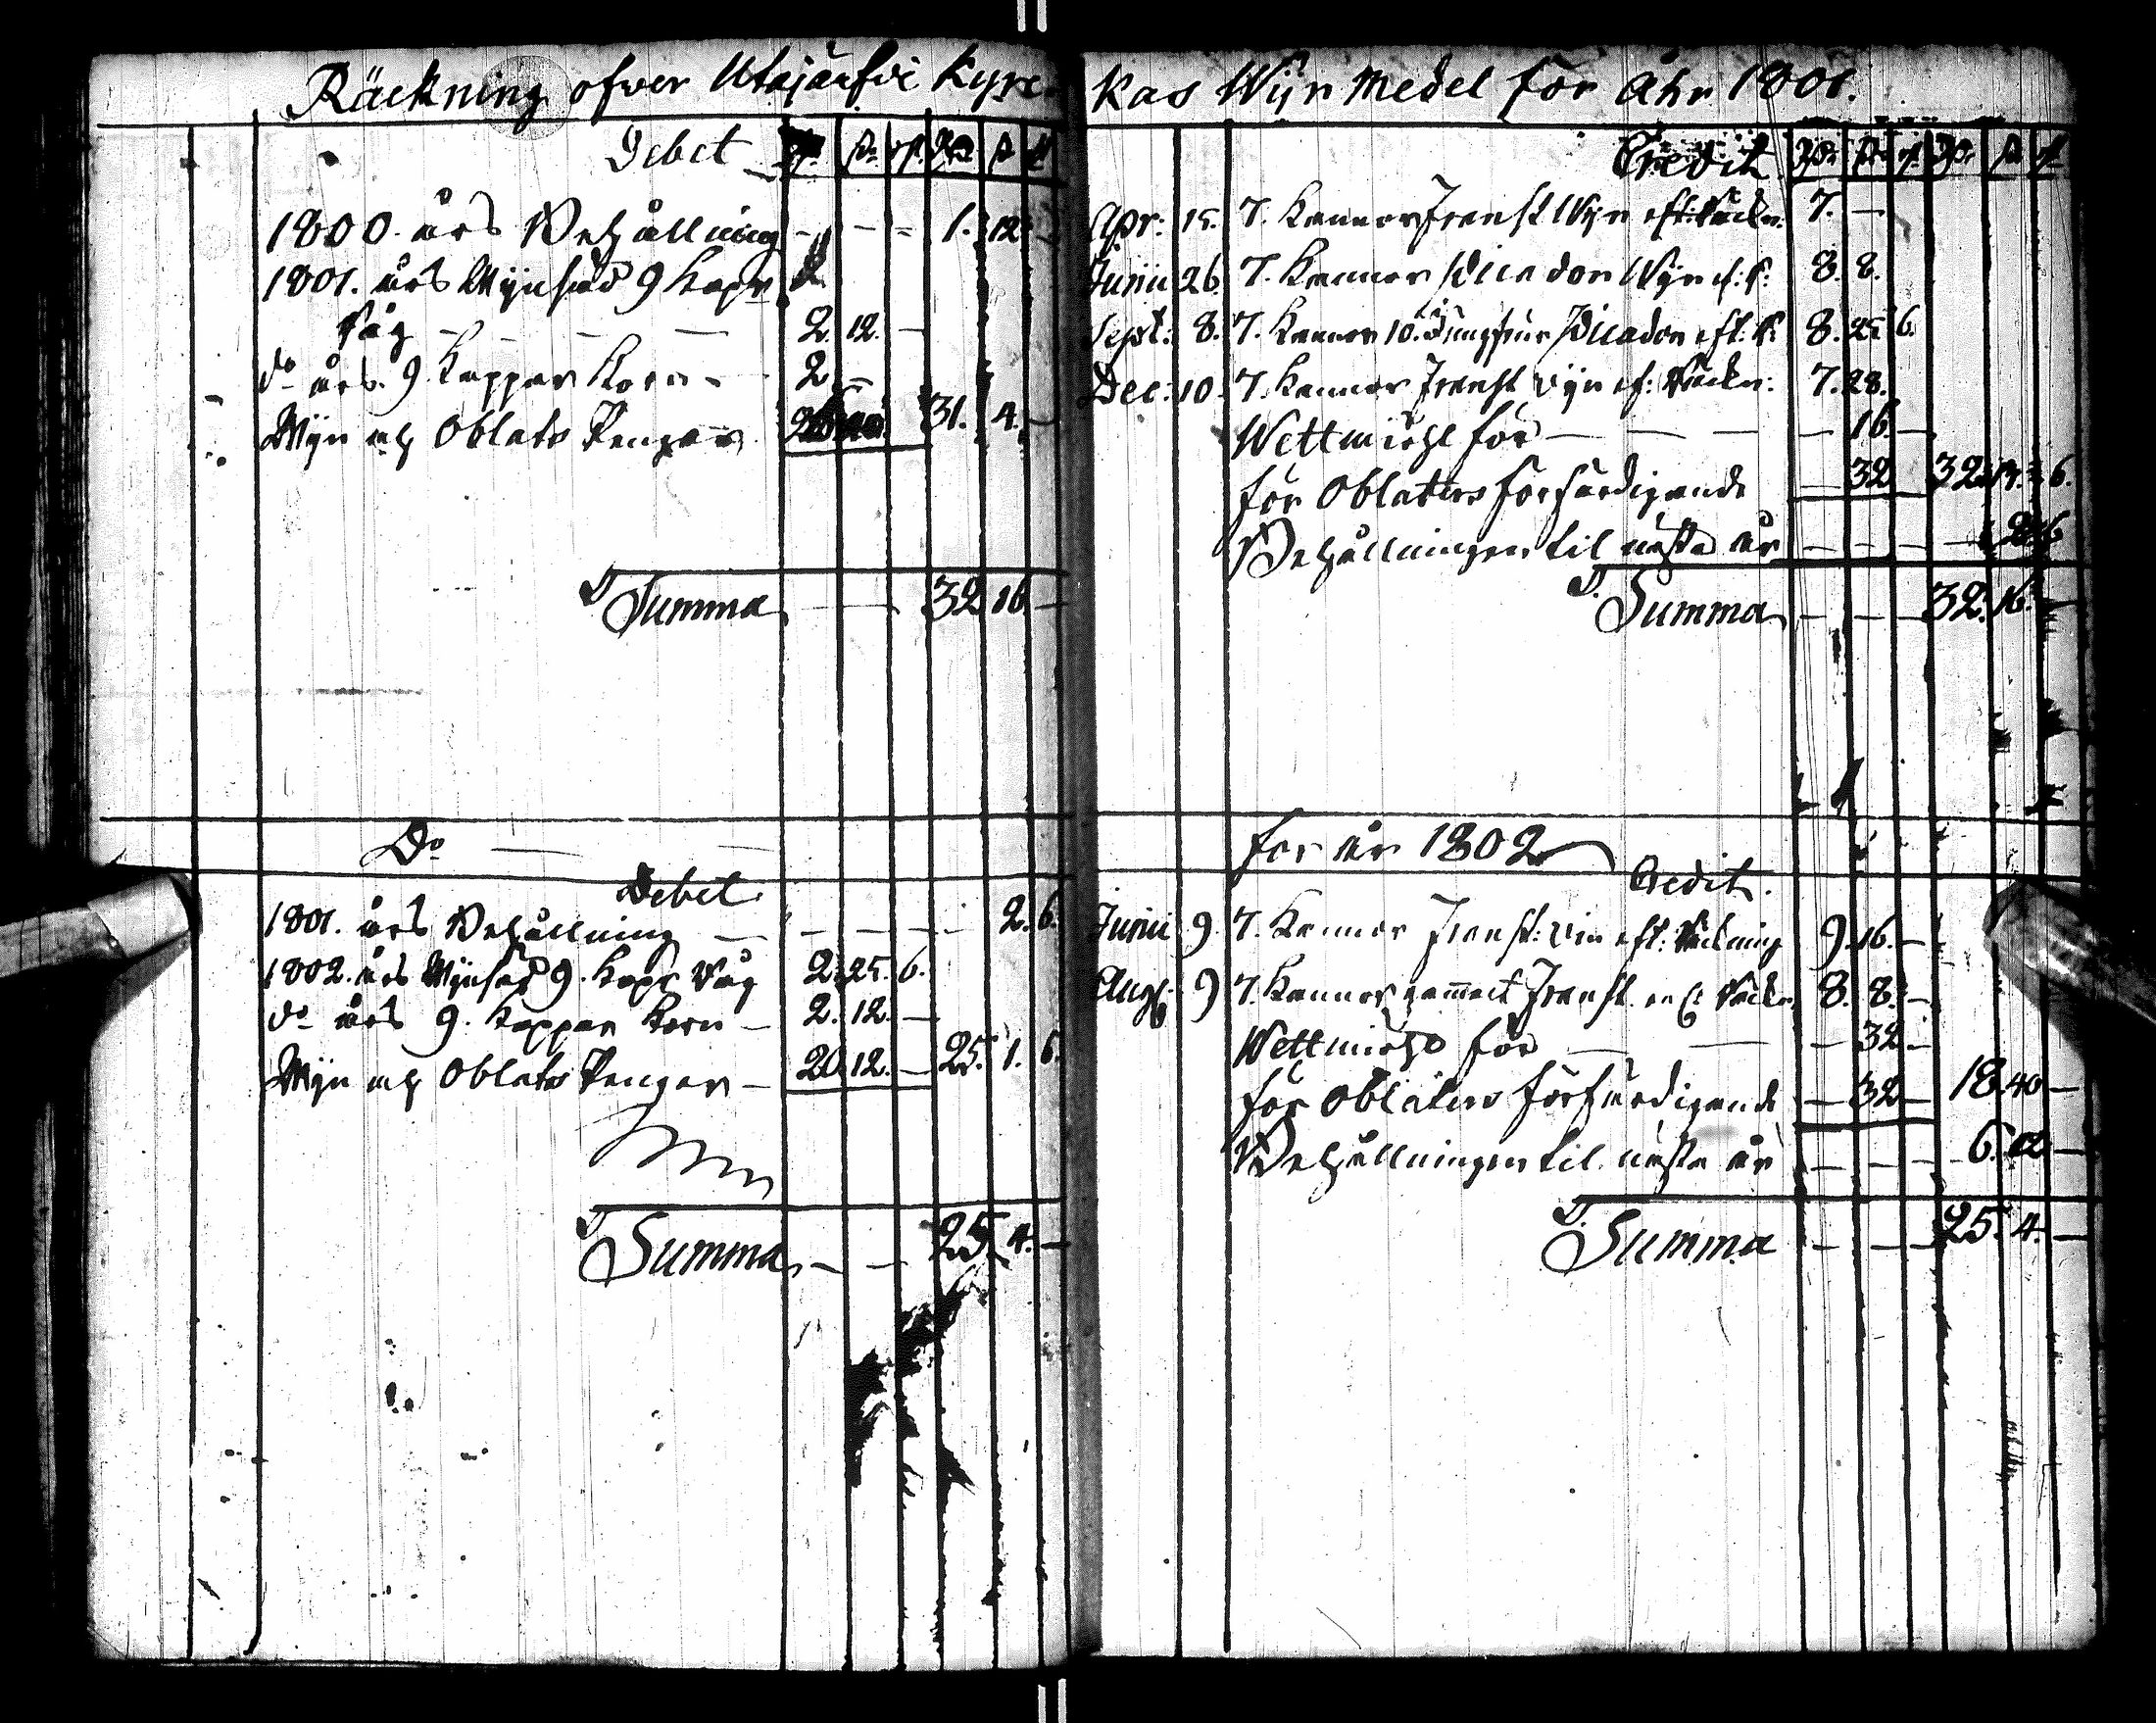 Räckning öfver Utajärfvi Kyrc-
Debet
1800. års Behållning - - = 1. 12. -
1801. års Wijnsäd 9 Kap:r
Råg - - - 2. 12. -
do års. 9. Kappar Korn - 2. -
Wijn och Oblats Penger 31. 4. -
Summa - - - 32 16 -
Do
Debet
1801. års Behållning - - - - - 2. 6.
1802. års Wijnsäd 9. Kapr Råg 2. 25. 6.
do års 9. Kappar Korn - 2. 12. -
Wijn och Oblats Penger - 20. 12. - 25. 1. 6.
Summa - - 25. 4. -
kas Wijn Medel för Åhr 1801.
Credit
Apr: 15. 7. Kannor Franskt Wijn eft: Räckn: 7. -
Junii 26. 7. Kannor Picadon Wijn ef: R: 8. 8.
Sept: 8. 7. Kannor 10. Jungfrur Picadon eft. R: 8. 25. 6.
Dec: 10. 7. Kannor Franskt Vijn ef: Räckn: 7. 28.
Hvettmiöhl för - - - 16. -
för Oblaters förfärdigande - 32 32. 13. 6.
Behållningen til nästa år - - - - 2. 6
Summa - - - 32. 16.
för År 1802
Credit.
Junii 9. 7. Kannor Franskt: Vin eft: Räckning 9. 16. -
Aug: 9 7. Kannor gammalt Franskt Räckn. 8. 8. -
Hvettmiöhl för - - - 32 -
för Oblaters förfärdigande - 32 - 18. 40 -
Behållningen til nästa år - - - 6. 12 -
Summa - - - 25. 4. -